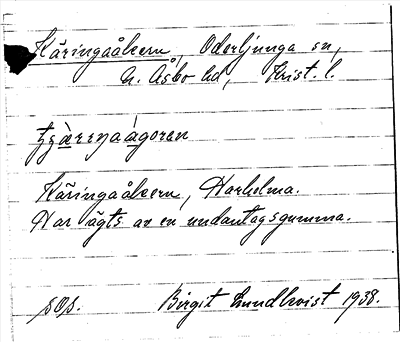 Käringaåkern, Oderljunga sn,
N. Åsbo hd, Krist. l.
Käringaåkern, Harholma.
Har ägts av en undantagsgumma.
sOs. Birgit Lundkvist 1938.